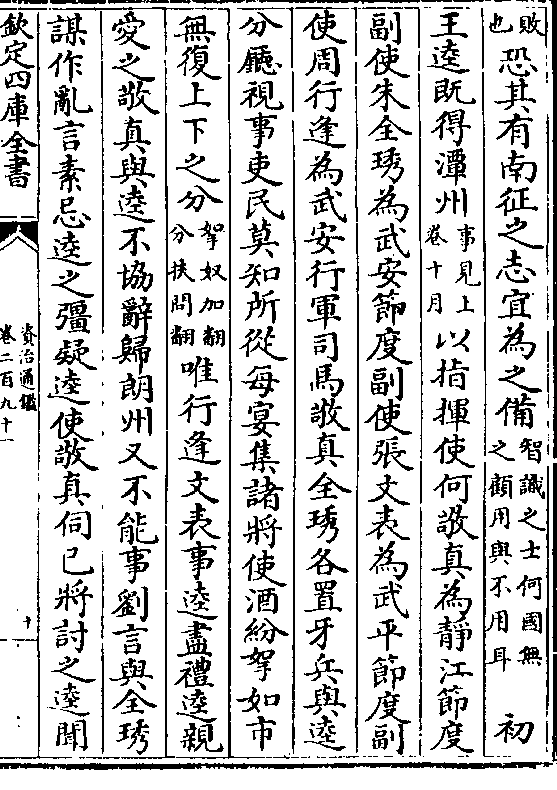 敗也恐其有南征之志宜為之備智識之士何國無之顧用與不用耳 初
王逵既得潭州事見上卷十月以指揮使何敬真為靜江節度
副使朱全琇為武安節度副使張文表為武平節度副
使周行逢為武安行軍司馬敬真全琇各置牙兵與逵
分廳視事吏民莫知所從每宴集諸將使酒紛拏如市
無復上下之分拏奴加翻分扶問翻唯行逢文表事逵盡禮逵親
愛之敬真與逵不協辭歸朗州又不能事劉言與全琇
謀作亂言素忌逵之彊疑逵使敬真伺已將討之逵聞
欽定四庫全書
資治通鑑
卷二百九十一
十